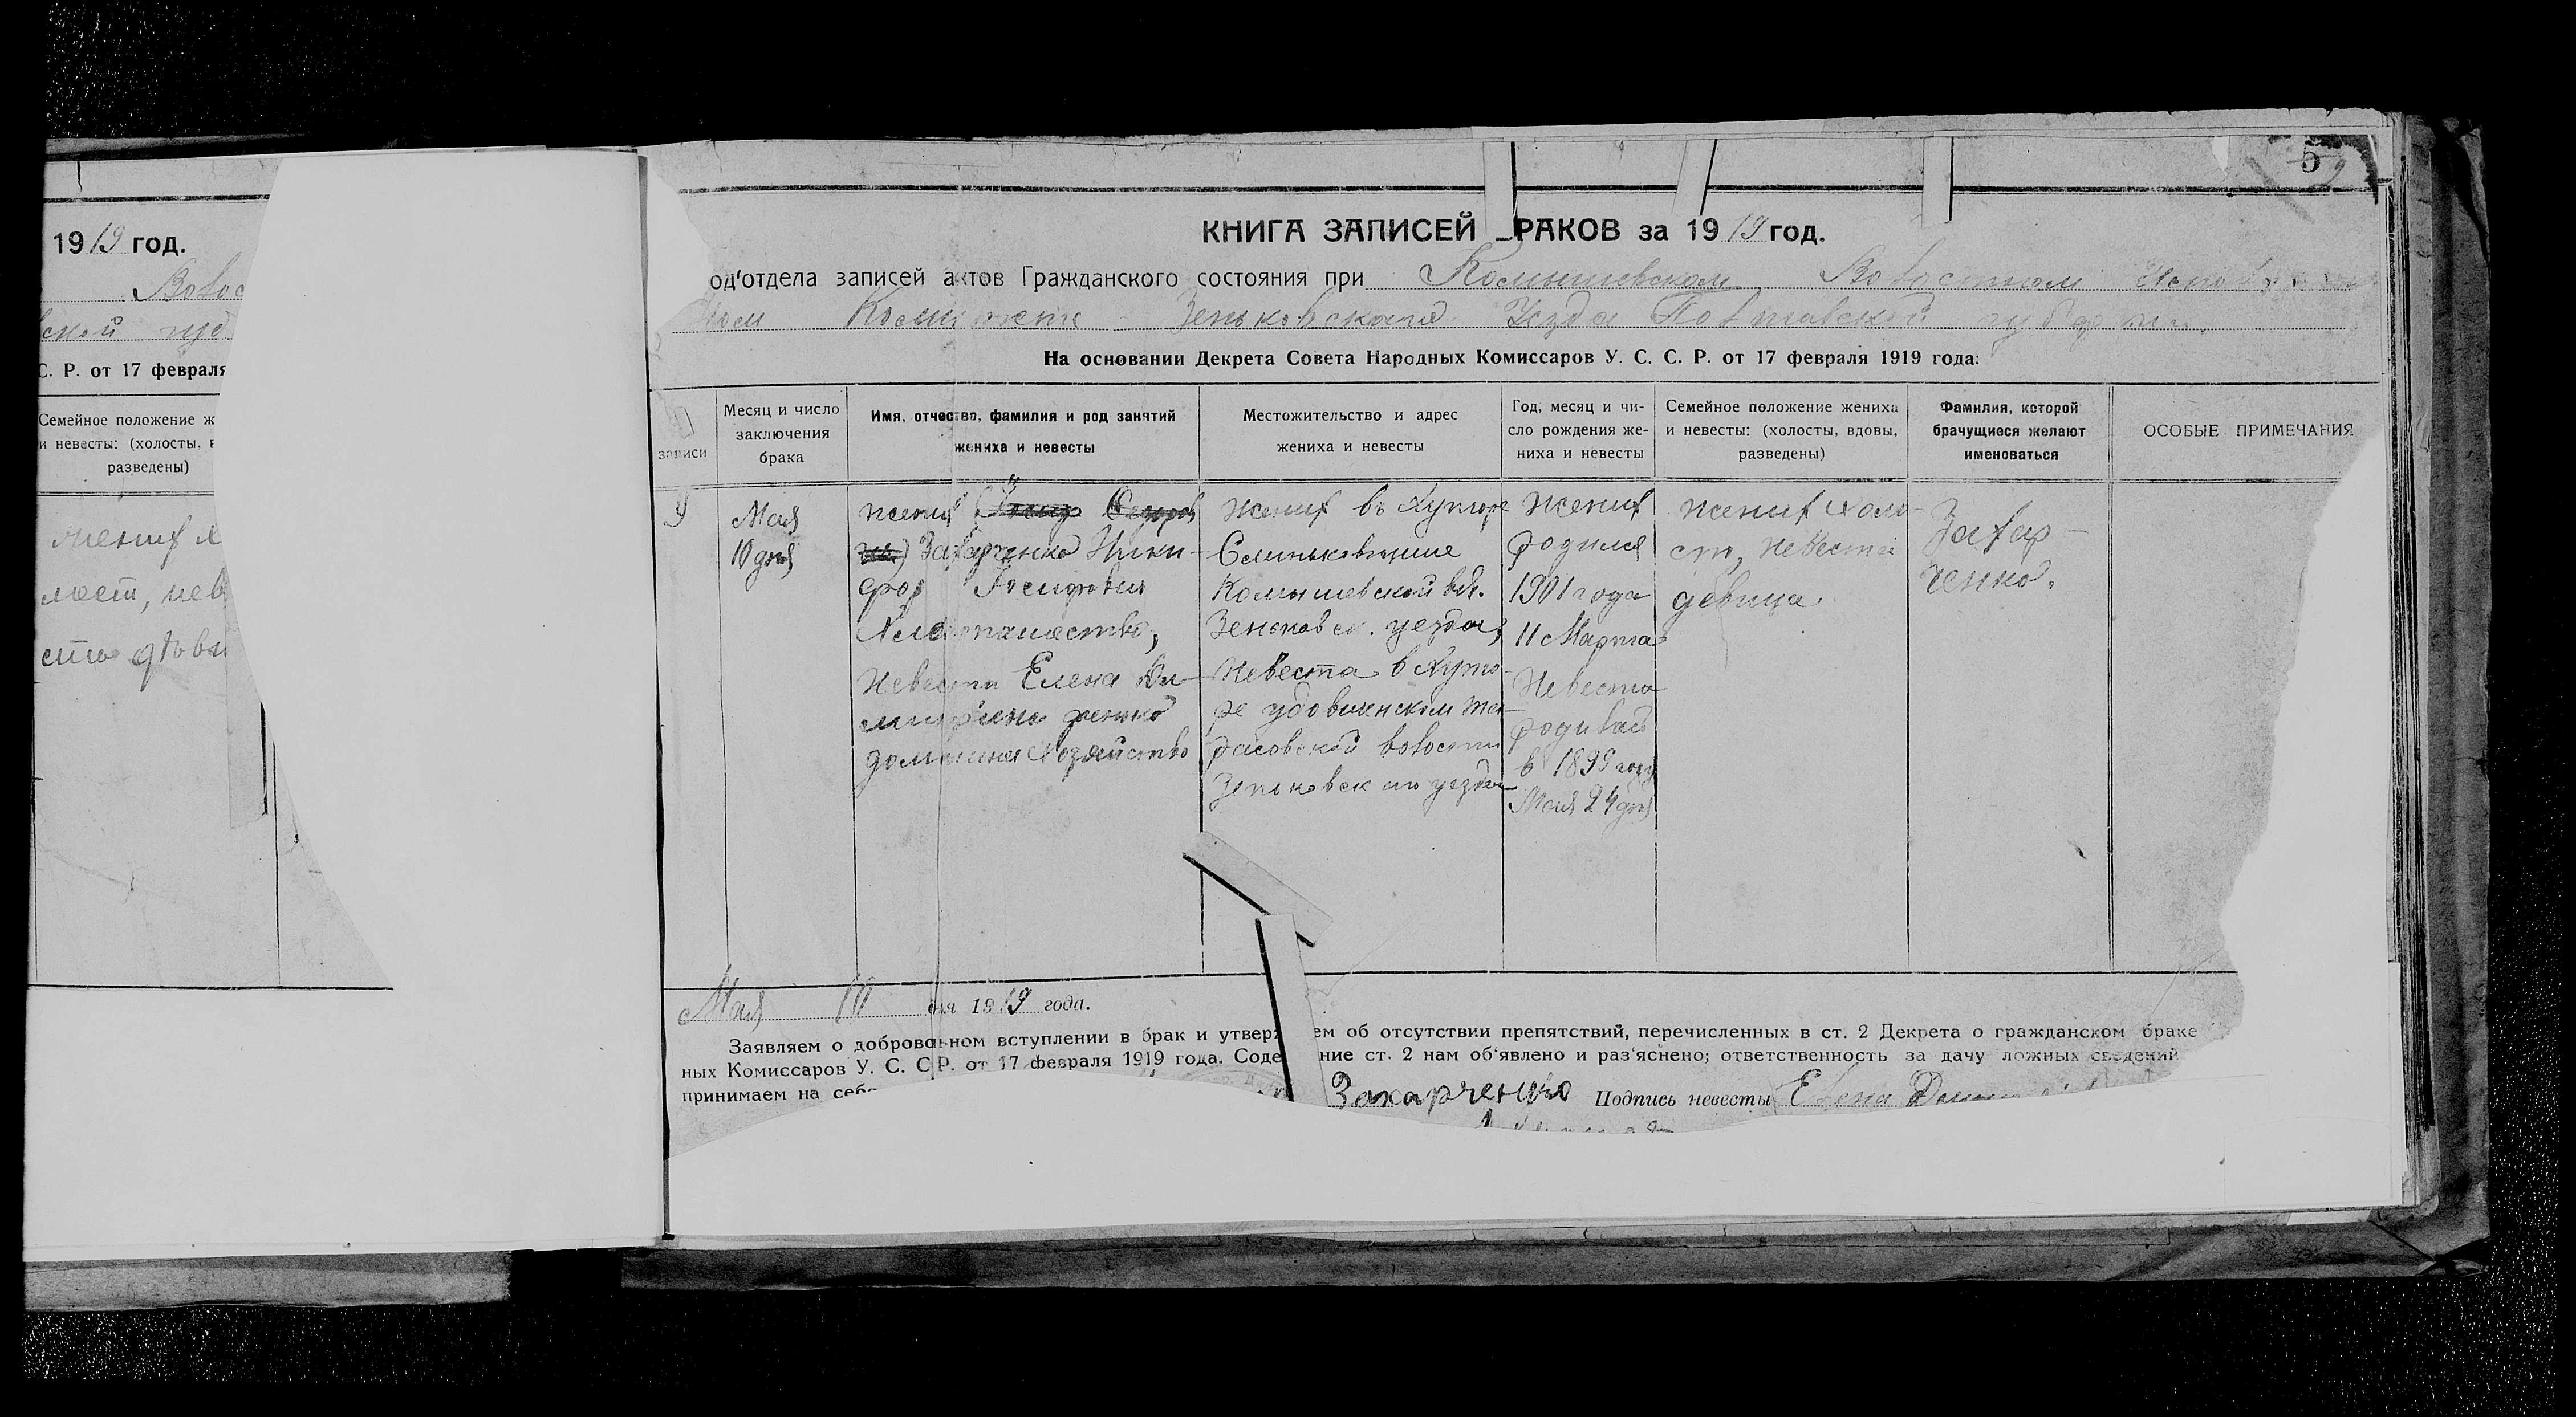 1919 год.
ской
С. Р. от 17 февраля
Семейное положение ж
и невесты: (холосты, в
разведены)
жених х
лост, нев
ста
5
КНИГА ЗАПИСЕЙ РАКОВ за 1919 год.
од'отдела записей актов Гражданского состояния при Комышевском Волостном
Зеньковского Уезда Полтавской
На основании Декрета Совета Народных Комиссаров У. С. С. Р. от 17 февраля 1919 года:
записи
Месяц и число
заключения
брака
Имя, отчество, фамилия и род занятий
жениха и невесты
Местожительство и адрес
жениха и невесты
Год, месяц и чи-
сло рождения же-
ниха и невесты
Семейное положение жениха
и невесты: (холосты, вдовы,
разведены)
Фамилия, которой
брачущиеся желают
именоваться
ОСОБЫЕ ПРИМЕЧАНИЯ
9
Мая
10 дня
жених
Захарченко Ники-
фор Иосифович
Хлебопашество,
Невеста Елена
домашнее хозяйство
жених въ хуторе
Комышевской вол.
Зеньковск. уезда,
Невеста в хуто-
ре
расовской волости
Зеньковск уезда
Жених
родился
1901 года
11 Марта
Невеста
родилась
в 1899 году
Мая 24 дня
жених холо-
ст, невеста
девица.
Захар-
ченко.
Мая 10 дня 1919 года.
Заявляем о добровольном вступлении в брак и утверж ем об отсутствии препятствий, перечисленных в ст. 2 Декрета о гражданском браке
ных Комиссаров У. С. С. Р. от 17 февраля 1919 года. Соде ние ст. 2 нам об'явлено и раз'яснено; ответственность за дачу ложных сведений
принимаем на себя Захарченко Подпись невесты Елена